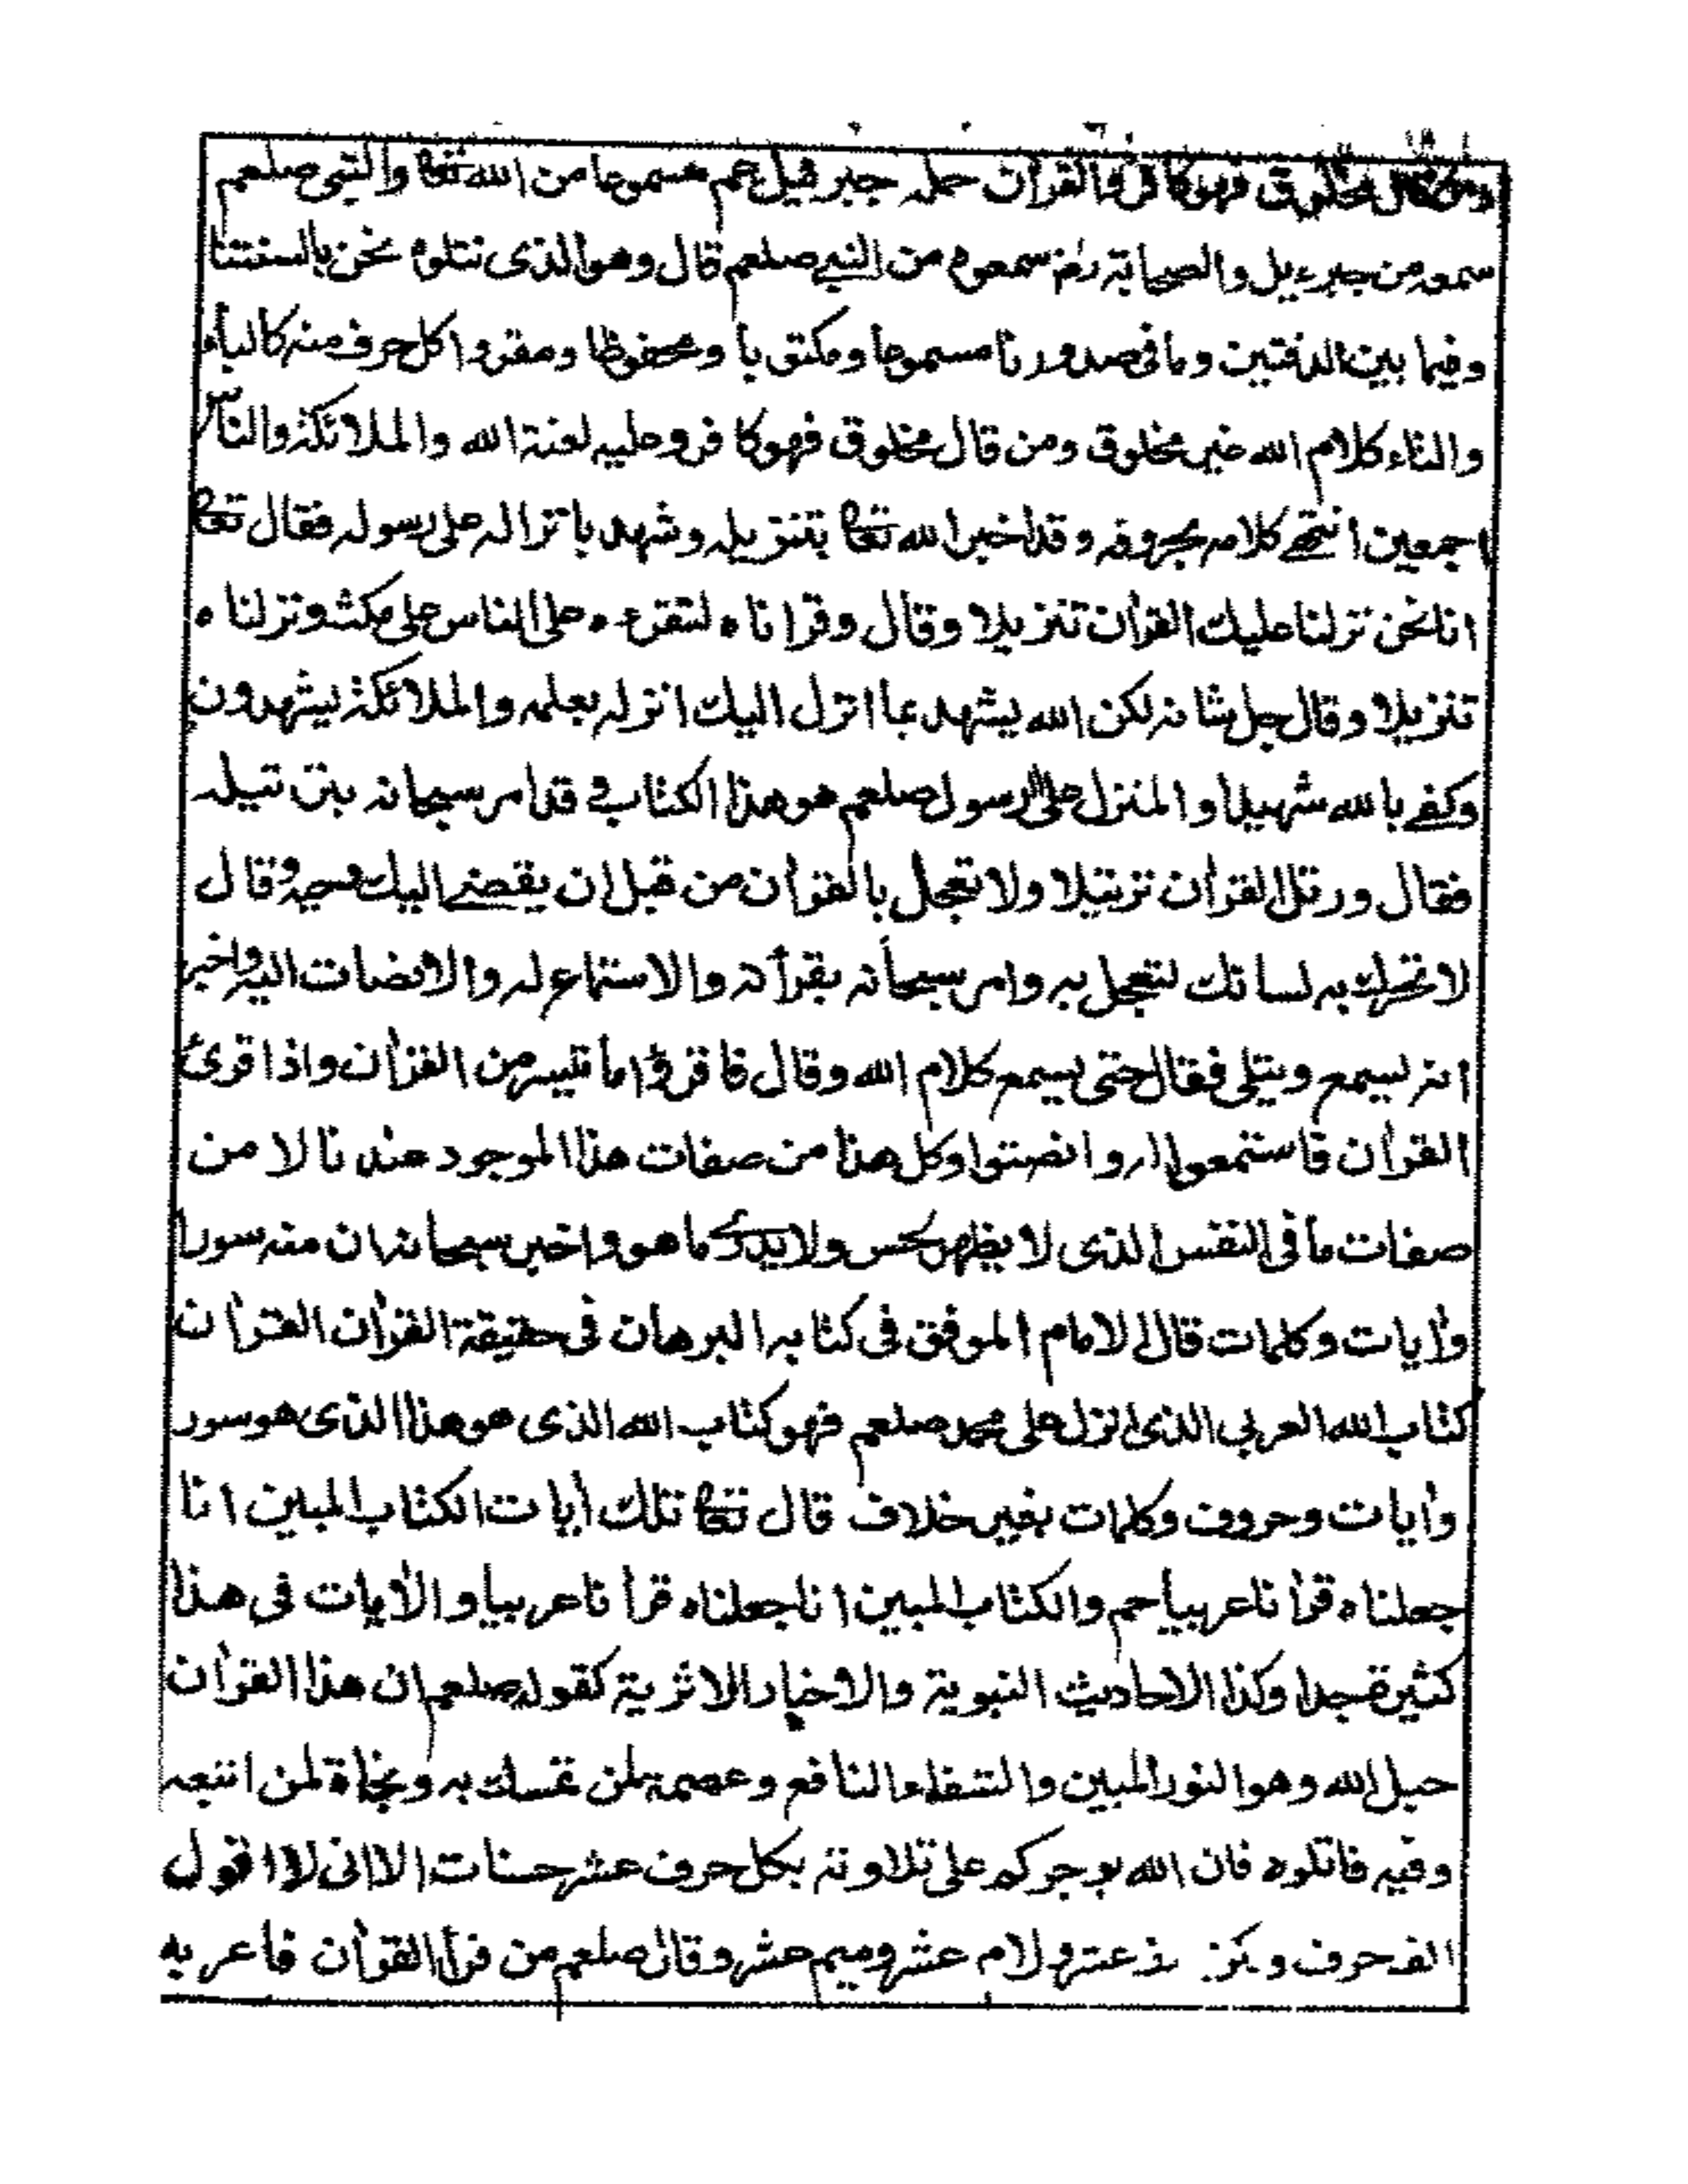 ومن قال مخلوق فهو كافر والقرآن حمله جبرئيل عم مسموعا من الله تعا والنبى صلعم
سمعه من جبرءيل والصحابة رض سمعوه من النبي صلعم قال وهو الذى نتلوه نحن بالسنتنا
وفيما بين الدفتين وما فى صدورنا مسموعا ومكتوبا ومحفوظا ومقروا كل حرف منه كالباء
والتاء كلام الله غير مخلوق ومن قال مخلوق فهو كافر وعليه لعنة الله والملائكة والناس
اجمعين انتهى كلامه بحروفه وقد اخبر الله تعا بتنزيله وشهد بانزاله على رسوله فقال تعا
انا نحن نزلنا عليك القرأن تنزيلا وقال وقرأناه لتقرءه على الناس على مكث ونزلناه
تنزيلا وقال جل شانه لكن الله يشهد بما انزل اليك انزله بعلمه والملائكة يشهدون
وكفى بالله شهيدا والمنزل على الرسول صلعم هو هذا الكتاب قد امر سبحانه بترتيله
فقال ورتل القرأن ترتيلا ولا تعجل بالقرأن من قبل ان يقضى اليك وحيه وقال
لا تحرك به لسانك لتعجل به وامر سبحانه بقرأته والاستماع له والانصات اليه واخبر
انه يسمع ويتلى فقال حتى يسمع كلام الله وقال فاقرؤا ما تيسر من القرأن واذا قرئ
القرأن فاستمعوا له وانصتوا وكل هذا من صفات هذا الموجود عندنا لا من
صفات ما فى النفس الذى لا يظهر لحس ولا يدرى ما هو واخبر سبحانه ان منه سورا
وأيات وكلمات قال الامام الموفق فى كتابه البرهان فى حقيقة القرأن القرأن
كتاب الله العربي الذى انزل على محمد صلعم فهو كتاب الله الذى هو هذا الذى هو سور
وأيات وحروف وكلمات بغير خلاف قال تعا تلك أيات الكتاب المبين انا
جعلناه قرأنا عربيا حم والكتاب المبين انا جعلناه قرأنا عربيا والأيات فى هذا
كثيرة جدا وكذا الاحاديث النبوية والاخبار الاثرية كقوله صلعم ان هذا القرأن
حبل الله وهو النور المبين والشفاء النافع وعصمة لمن تمسك به ونجاة لمن اتبعه
وفيه فاتلوه فان الله يوجركم على تلاوته بكل حرف عشر حسنات الا انى لا اقول
الف حرف عشر ولام عشر وميم عشر وقال صلعم من قرأ القرأن فاعربه